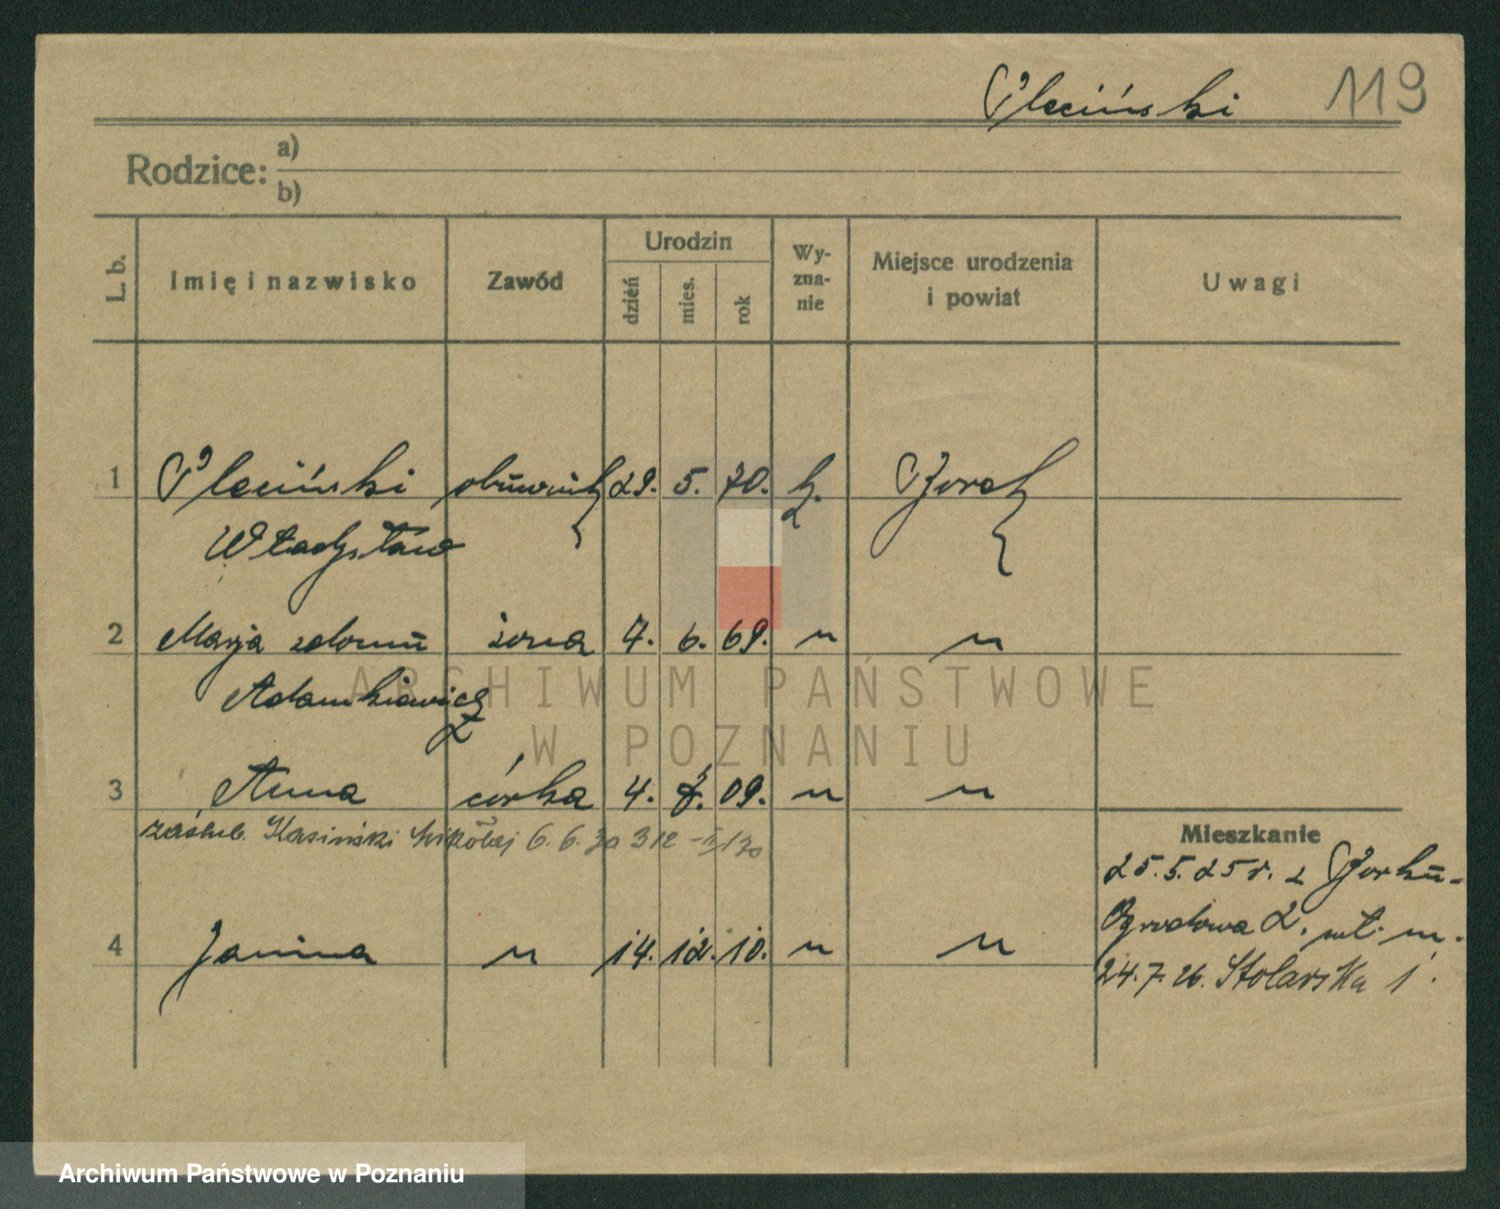 Pleciński 119
Rodzice: a)
b)
L. b. Imię i nazwisko Zawód Urodzin dzień mies. rok Wy-zna-nie Miejsce urodzenia i powiat Uwagi
1 Pleciński obuwnik 29. 5. 70. k.
Władysław
2 Marja z domu żona 7. 6. 69. "
Adamkiewicz
3 Anna córka 4. 09. " "
zaślub. Kasiński Mikołaj 6. 6. 30
4 Janina " 14. 12. 10. " "
Mieszkanie
25. 5. 25 r. z
Ogrodowa 2.
24. 7. 26. Stolarska 1.
ARCHIWUM PAŃSTWOWE
W POZNANIU
Archiwum Państwowe w Poznaniu